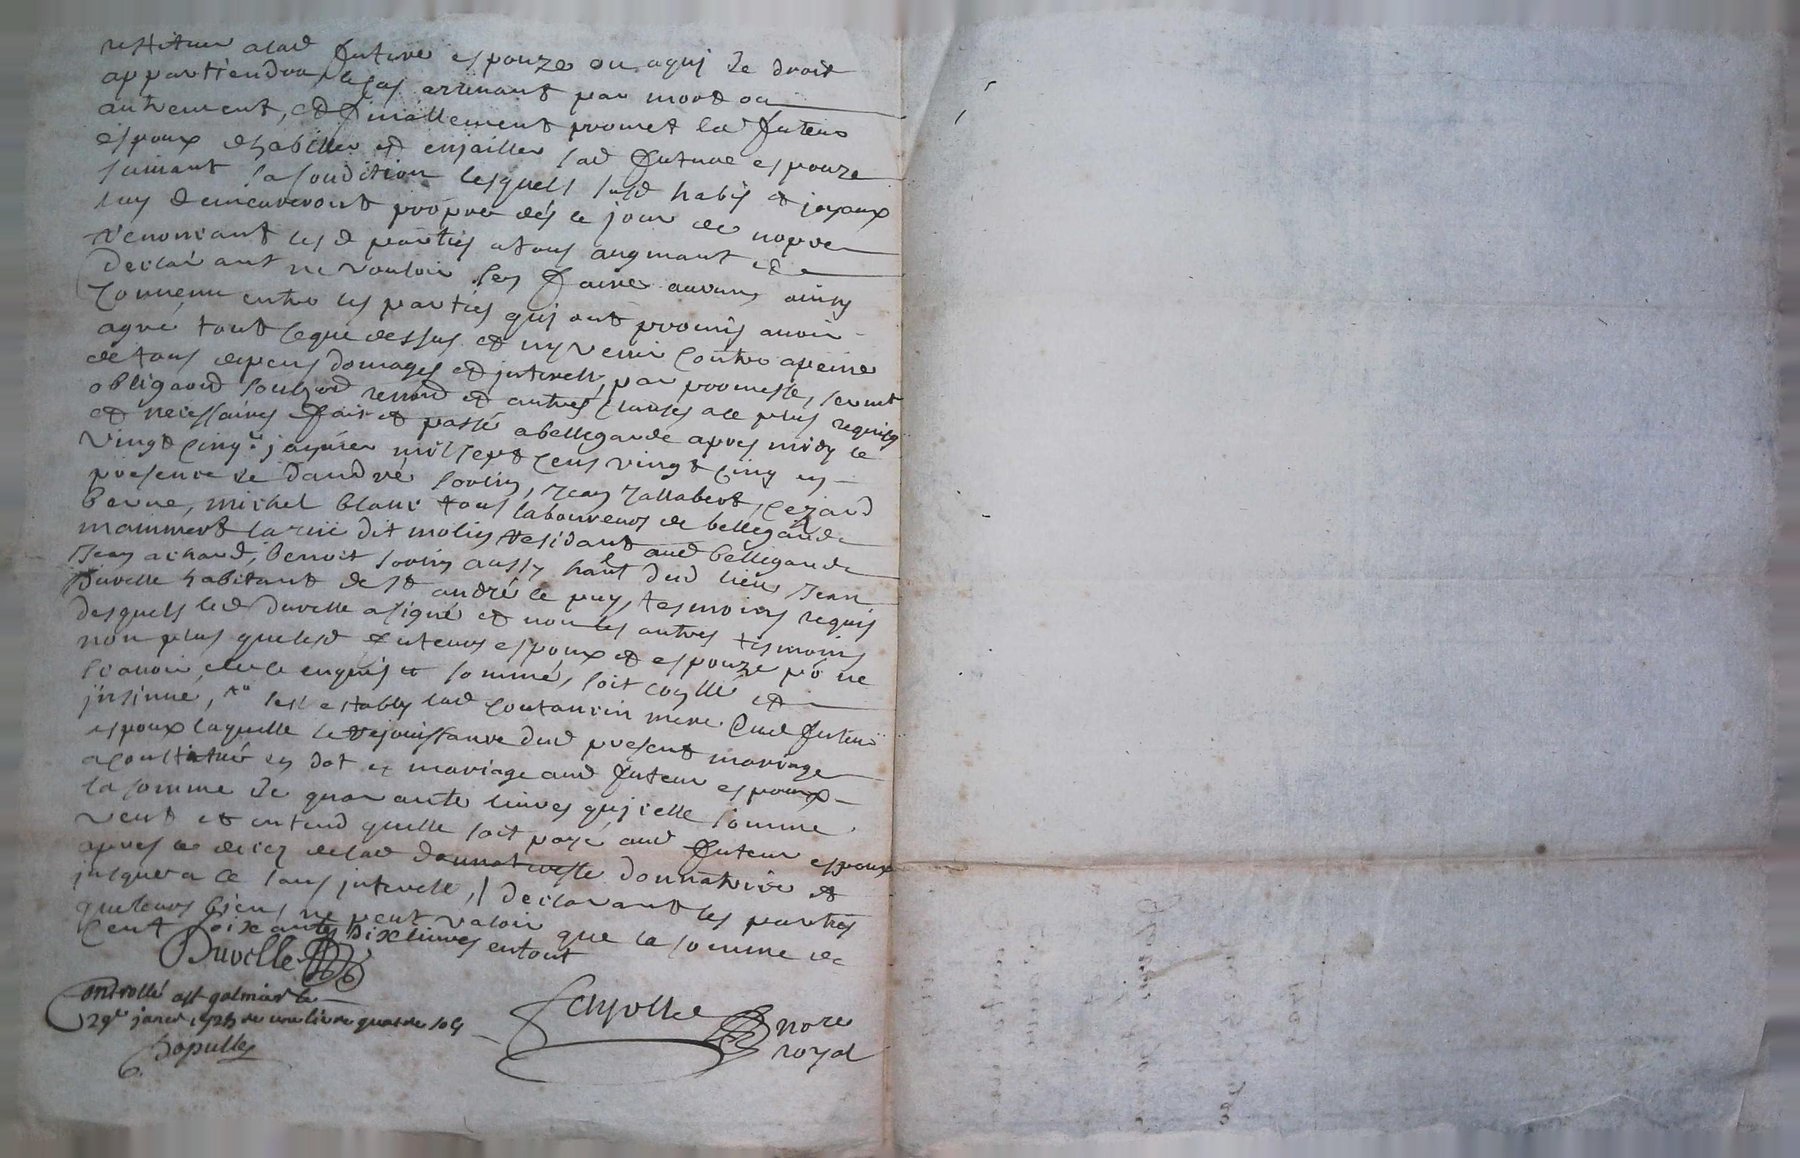 restituer a lad future espouze ou a qui de droit
appartiendra le cas arrivant par mort ou
autrement, et finallement promet led futeur
espoux d'habiller et enjailler lad future espouze
suivant sa condition lesquels susd habis et joyaux
luy demeureront propre dés le jour des nopces
renoncant lesd parties a tous augmant et
declarant ne vouloir sen faire aucuns ainsy
convenu entre les parties qui ont promis avoir
agreé tout ce que dessus et ny venir contre a peine
de tous depens domages et interests, par promesse, serment
obligaons soubzons renons et autres clauses a ce plus requises
et necessaires fait et passé a bellegarde apres midy le
vingt cinqe janvier mil sept cens vingt cinq en
presence de d'andré sovin, Jean Jallabert, cezard
berne, michel blanc tous laboureurs de bellegarde
mammert la rue dit molin residant aud bellegarde
Jean achard, benoit sovin aussy hant dud lieu Jean
Duvelle habitant de st andré le puy, tesmoins requis
desquels led Duvelle a signé et non les autres tesmoins
non plus que lesd futeurs espoux et espouze pō ne
scavoir de ce enquis et sommé, soit coyllé et
insinué, s'est establly lad coutancin mere dud futeur
espoux laquelle en rejouissance dud present mariage
a constitué en dot et mariage aud futeur espoux
la somme de quarante livres qu'icelle somme
veut et entend quelle soit payé aud futeur espoux
apres le decez de lad donnatresse donnatrice et
jusques a ce sans interests, declarant les parties
que leurs biens ne peut valoir que la somme de
Cent soixante dix livres en tout
Duvelle
Controllé a st galmier le
29e janvr 1725 re une livre quatre sols
Dopulle
Fayolle nore
royal